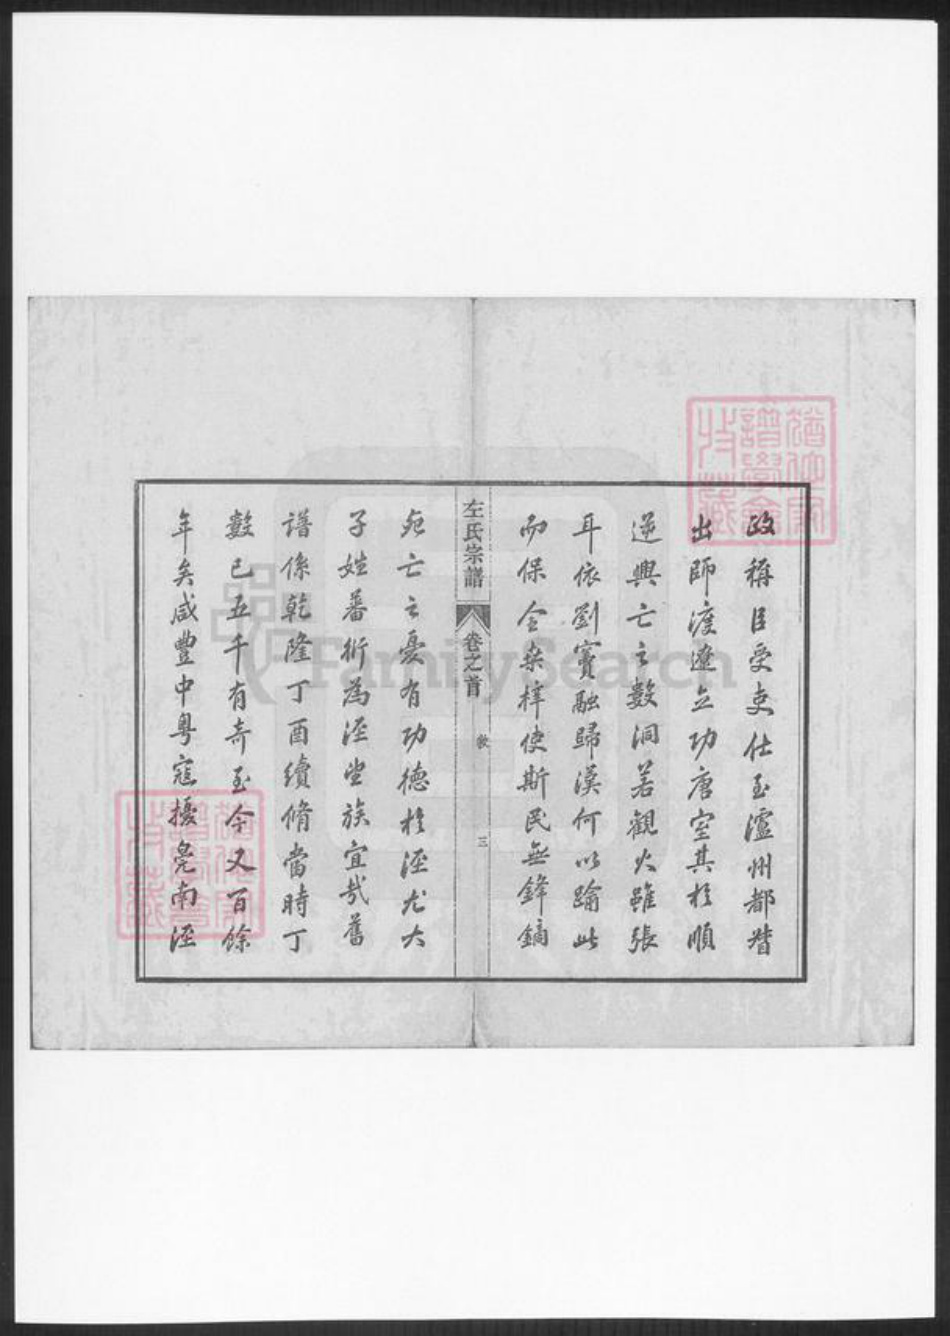 政稱臣受吏仕至瀘州都督
出師渡遼立功唐室其於順
逆興亡之數洞若觀火雖張
耳依劉竇融歸漢何以踰此
而保全桑梓使斯民無鋒鏑
左氏宗譜
卷之首
三
死亡之憂有功德於涇尤大
子姓蕃衍為涇望族宜哉舊
譜係乾隆丁酉續脩當時丁
數已五千有奇至今又百餘
年矣咸豐中粵寇擾皖南涇
FamilySearch